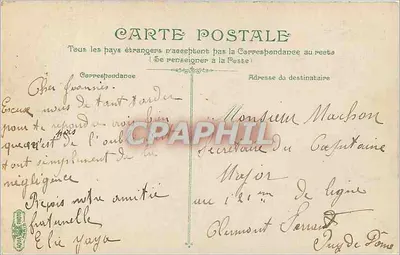 CARTE POSTALE
Tous les pays étrangers n'acceptent pas la Correspondance au recto
(Se renseigner à la Poste)
Correspondance
Adresse du destinataire
Cher Joannès
Excuse nous de tant tarder
pour te répondre crois bien
que mes de l'oubli
tout simplement de la
négligence
Reçois notre amitié
fraternelle
Elie Yaya
Monsieur Machon
Secrétaire du Capitaine
Major
au 121 me de ligne
Clermont Ferrand
Puy de Dôme
CPAPHIL